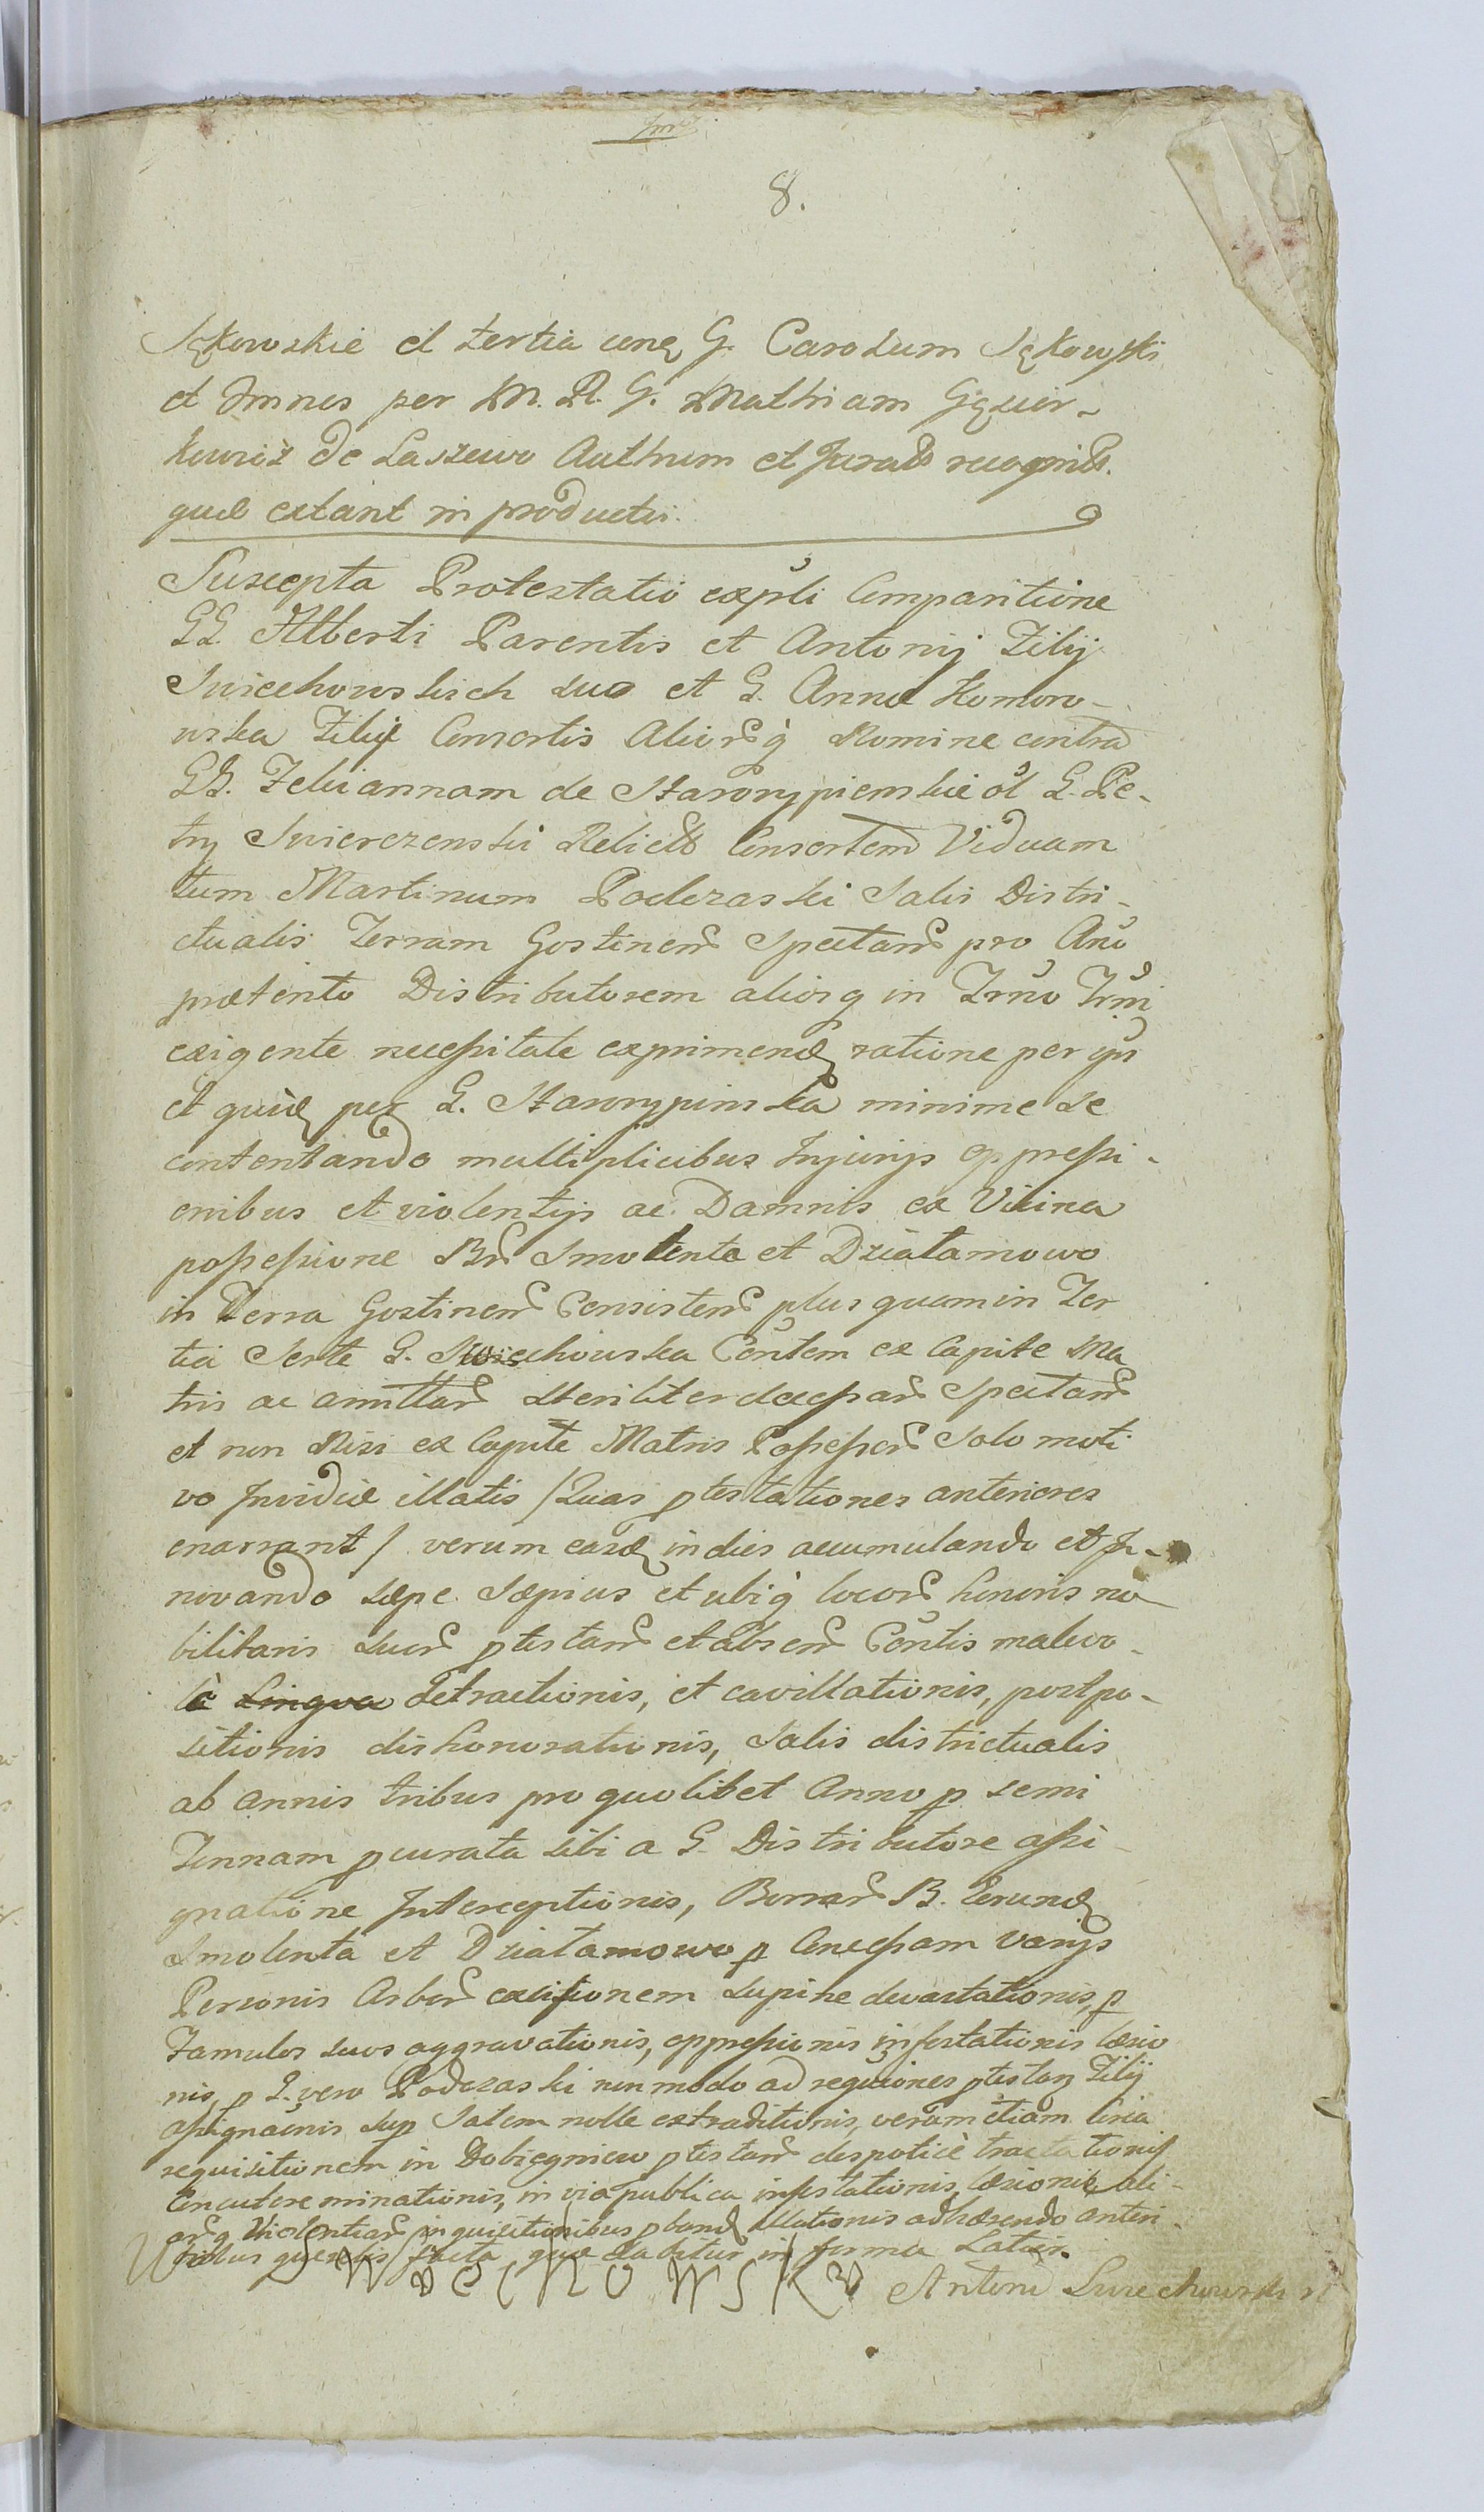 8.
Sękowskie et tertia conq G. Carolum Sękowski
et Omnes per M. R. G. Mathiam
de Laszewo Authum et Jurat recognit.
quæ extant in productis.
Suscepta Protestatio exprti Comparitione
GG. Alberti Parentis et Antonij Filij
Swiechowskich suo et G. Annæ Komoro-
wska Filij Consortis Aliorq Nomine contra
GG. Feliciannam de Starorypienskie ol G. Pe-
try Swierczenski Relict Consortem Viduam
tum Martinum Podczaski Salis Distri-
ctualis Terram Gostinen Spectan pro Ano
prætento Distributorem aliosq in Trno Trmi
exigente necessitate exprimend ratione per ips
et quid per G. Starorypinska minime se
contentando multiplicibus Injurijs oppressi-
onibus et violentijs ac Damnis ex Vicina
possessione Bn Smolenta et Dziatamowo
in Terra Gostinen Consisten plus quam in Ter
tia Sorte G. Swiechowska Contem ex Capite Ma
tris ac steriliter Spectan
et non Nisi ex Capite Matris Possessor Solo moti
vo Invidiæ illatis /Quas ptestationes anteriores
enarrant/ verum easd indies accumulando et In-
novando sæpe Sæpius et ubiq locor honoris no
bilitaris suor ptestan et absen Contis malevo-
le Lingua Detractionis, et cavillationis, postpo-
sitionis dishonorationis, Salis districtualis
ab annis tribus pro quolibet Anno p semi
Tunnam pcurata sibi a G. Distributore assi-
gnatione Interceptionis, Borrar B. Eorund
Smolenta et Dziatamowo p Concessam varijs
Personis Arbor excisionem supine devastationis, p
Famulos suos aggravationis, oppressionis infestationis læsio
nis, p G. vero Podczaski non modo ad requiones ptestan Filij
assignaonis sup Salem nolle extraditionis, verum etiam circa
requisitionem in Dobiegniewo ptestan despoticè tractationis
Concutere minationis, in via publica infestationis, læsionis ali-
arq Violentiar inquisitionibus pband illationis adhærendo anteri-
oribus querelis facta quæ dabitur in forma Latiori.
Swiechowski Antoni Swiechowski